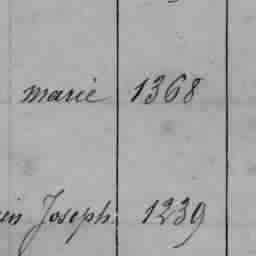 marie 1368
Joseph. 1239